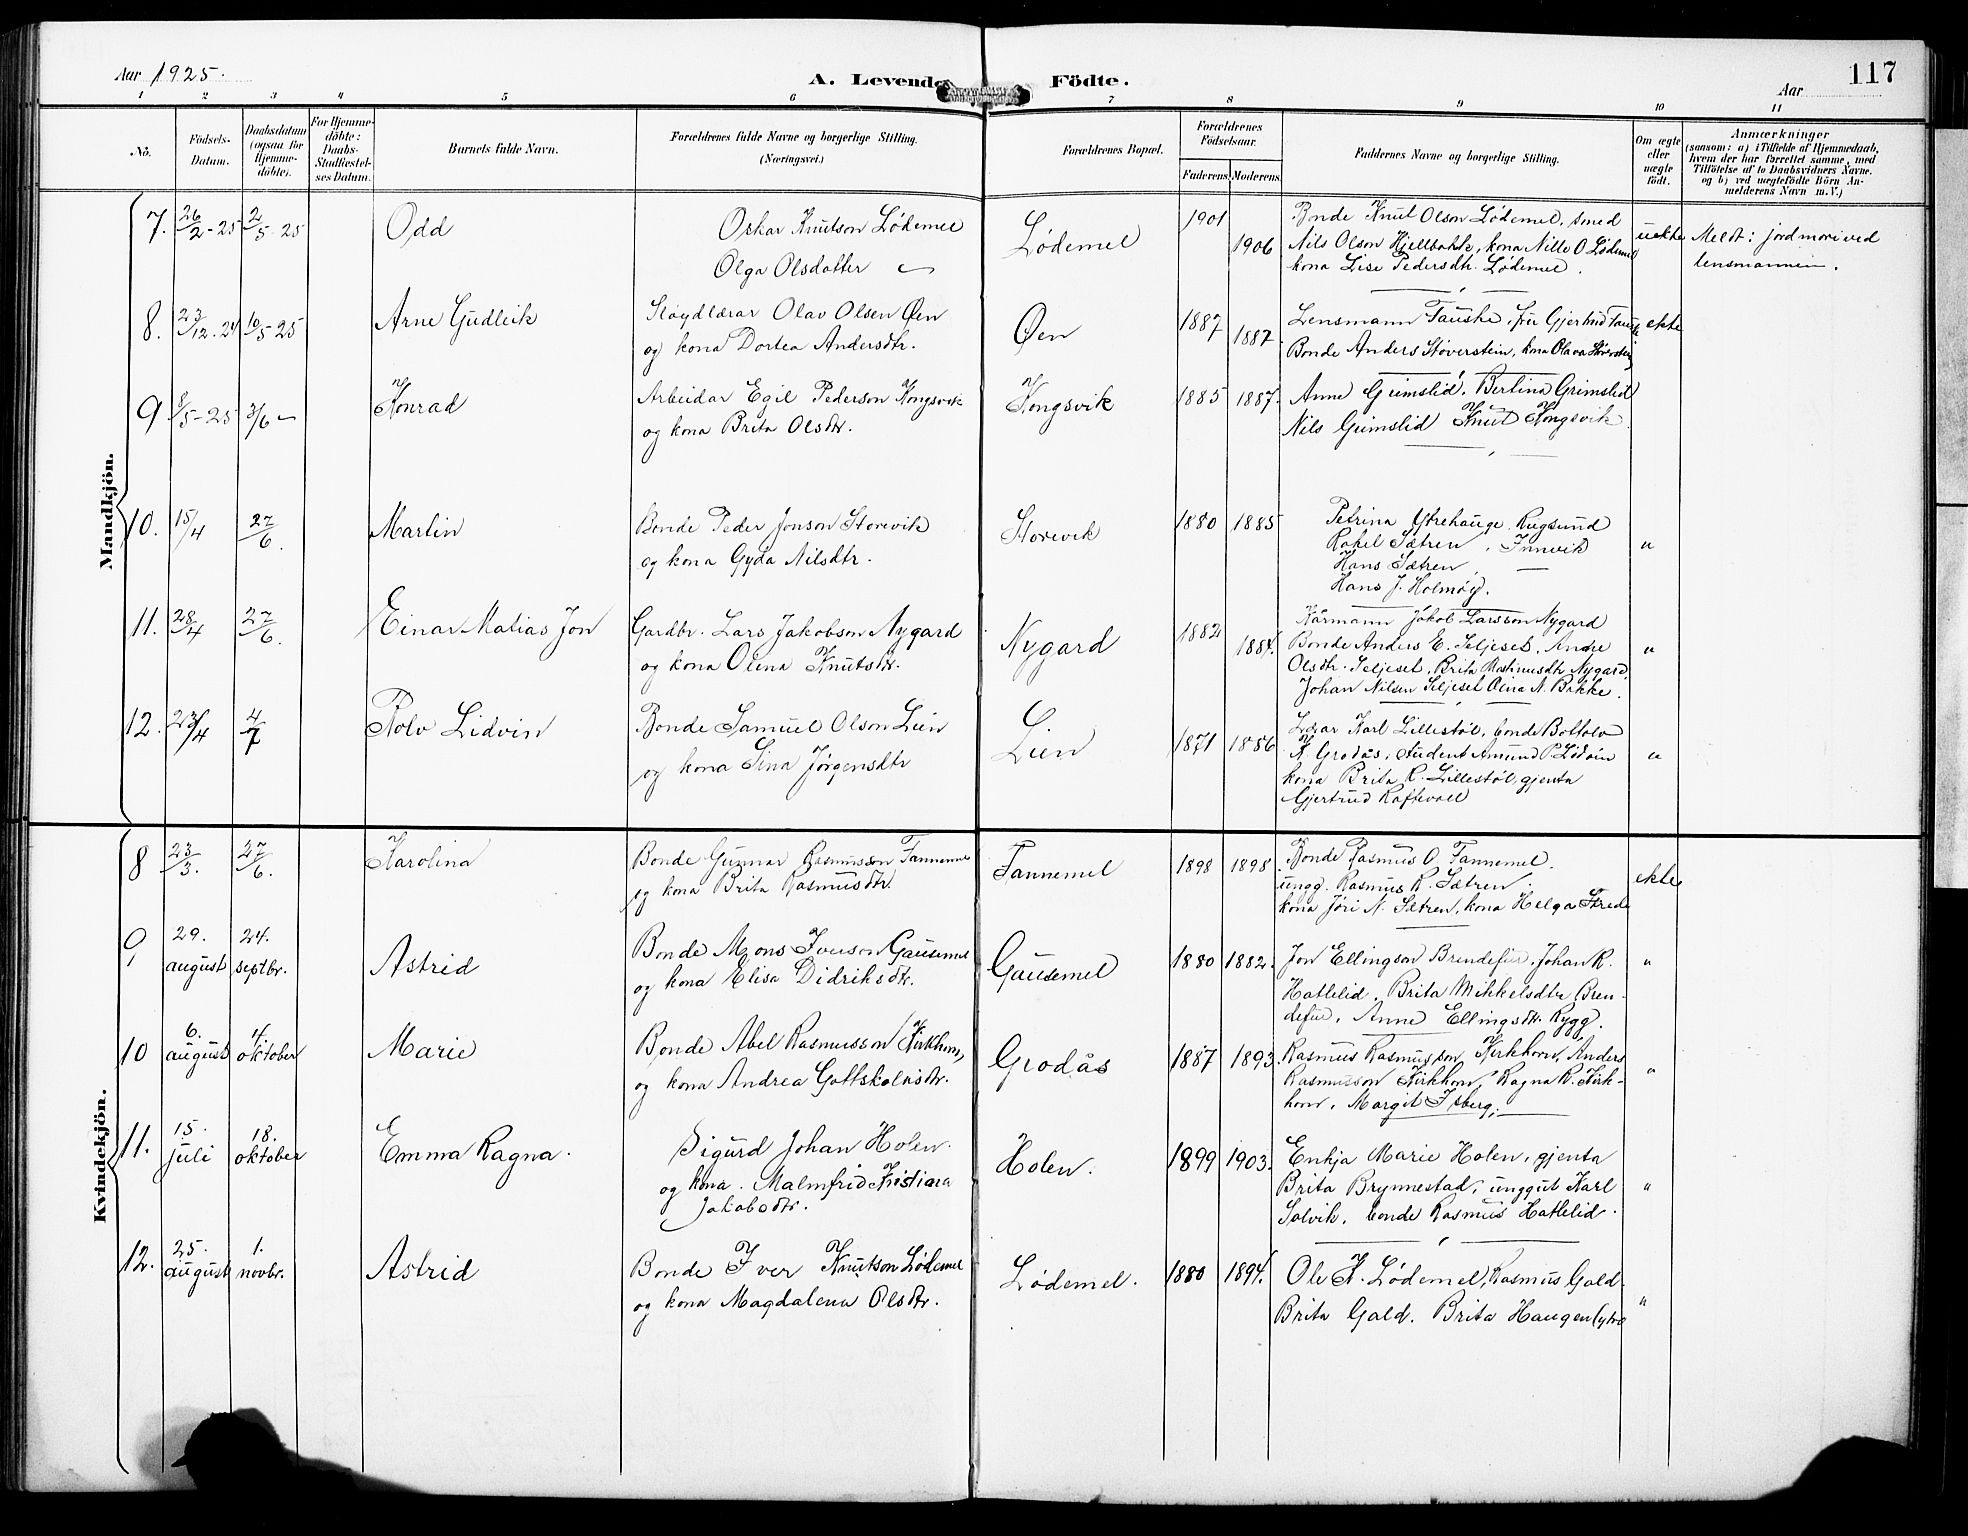 Aar 1925.
A. Levende Födte.
117
Aar
1 2 3 4 5 6 7 8 9 10 11
No.
Födsels-
Datum.
Daabsdatum
(ogsaa for
Hjemme-
döbte).
For Hjemme-
döbte:
Daabs-
Stadfæstel-
ses Datum.
Barnets fulde Navn.
Forældrenes fulde Navne og borgerlige Stilling.
(Næringsvei.)
Forældrenes Bopæl.
Forældrenes
Födselsaar.
Faderens. Moderens.
Faddernes Navne og borgerlige Stilling.
Om ægte
eller
uægte
födt.
Anmærkninger
(saasom: a) i Tilfælde af Hjemmedaab,
hvem der har forrettet samme, med
Tilföielse af to Daabsvidners Navne.
og b) ved uægtefödte Börn An-
melderens Navn m. V.)
Mandkjön.
7. 26/2-25 2/5-25
Odd
Oskar Knutson Lødemel
Olga Olsdatter
Lødemel
1901 1906
Bonde Knut Olson Lødemel, smed
Nils Olson Hjellbakke, kona Nille O. Lødemel
kona Lise Pedersdtr. Lødemel.
uekte
Meldt: jordmori ved
lensmannen.
8. 23/12-24 10/5-25
Arne Gudleik
Sløydlærar Olav Olsen Øen
og kona Dortea Andersdtr.
Øen
1887 1887.
Lensmann Tauske, fru Gjertrud Tauske
Bonde Anders Støverstein, kona Olava Støverstein
ekte
9 8/5-25 3/6 -
Konrad
Arbeidar Egil Pederson Kongsvik
og kona Brita Olsdtr.
Kongsvik
1885 1887.
Anne Grimslid, Bertina Grimslid
Nils Grimslid Knut Kongsvik
10. 15/4 27/6.
Martin
Bonde Peder Jonson Storevik
og kona Gyda Nilsdtr.
Storevik
1880 1885
Petrina Ytrehauge Rugsund
Rakel Sætren, Innvik
Hans Sætren, —
Hans J. Holmøy.
"
11. 28/4 27/6.
Einar Matias Jon
Gardbr. Lars Jakobson Nygard
og kona Olina Knutsdtr.
Nygard
1882 1884.
Kårmann Jakob Larsson Nygard
Bonde Anders E. Seljeset, Andre
Olsdtr. Seljeset, Brita Rasmusdtr Nygard,
Johan Nilsen Seljeset Olina N. Bakke.
"
12. 23/4 4/7
Rolv Lidvin
Bonde Samuel Olson Lien
og kona Sina Jørgensdtr
Lien
1871 1886
Lærar Karl Lillestøl, bonde Bottolv
K. Grodås, student Amund P. Lødøin
kona Brita R. Lillestøl, gjenta
Gjertrud Raftevoll
"
Kvindekjön.
8 23/3. 27/6.
Karolina
Bonde Gunnar Rasmusson Tannemel
og kona Brita Rasmusdtr.
Tannemel
1898 1898
Bonde Rasmus O. Tannemel.
ungg. Rasmus R. Sætren.
kona Jøri N. Sætren, kona Helga Strede
ekte
9, 29. august 24. septbr.
Astrid
Bonde Mons Iverson Gausemel
og kona Elisa Didriksdtr.
Gausemel
1880 1882.
Jon Ellingson Brendefur, Johan R.
Hatlelid, Brita Mikkelsdtr Bren-
defur, Anne Ellingsdtr. Rygg.
"
10 6. august 4. oktober
Marie
Bonde Abel Rasmusson Kirkhorn,
og kona Andrea Gottskalksdtr.
Grodås
1887 1893.
Rasmus Rasmusson Kirkhorn, Anders
Rasmusson Kirkhorn, Ragna R. Kirk-
horn, Margit Isberg.
"
11. 15. juli 18. oktober
Emma Ragna.
Sigurd Johan Holen.
og kona. Malmfrid Kristiana
Jakobsdtr.
Holen.
1899 1903.
Enkja Marie Holen, gjenta
Brita Brynnestad, unggut Karl
Solvik, bonde Rasmus Hatlelid.
"
12. 25. august 1. novbr.
Astrid
Bonde Iver Knutson Lødemel
og kona Magdalena Olsdtr.
Lødemel.
1880 1894.
Ole K. Lødemel, Rasmus Gald.
Brita Gald. Brita Haugen (ytre
"